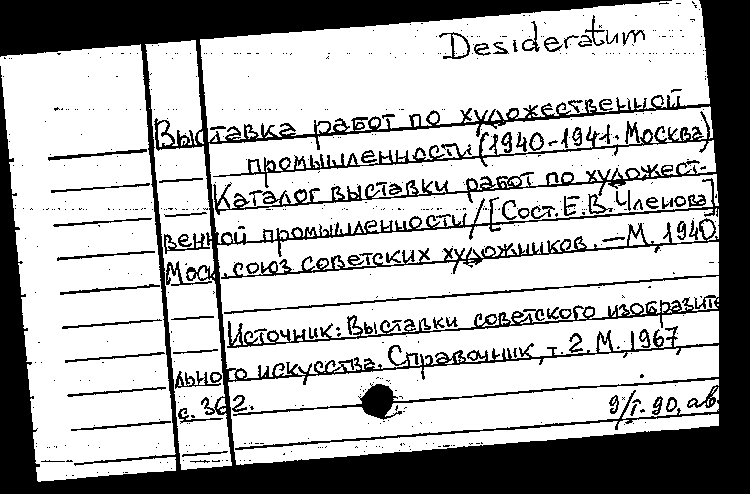 Desideratum
Выставка работ по художественной
промышленности (1940-1941; Москва)
Каталог выставки работ по художест-
венной промышленности / [Сост. Е.В. Членова]
Моск. союз советских художников. — М., 1940.
Источник: Выставки советского изобразите
льного искусства. Справочник, т. 2. М., 1967,
с. 362.
9/I-90, ав